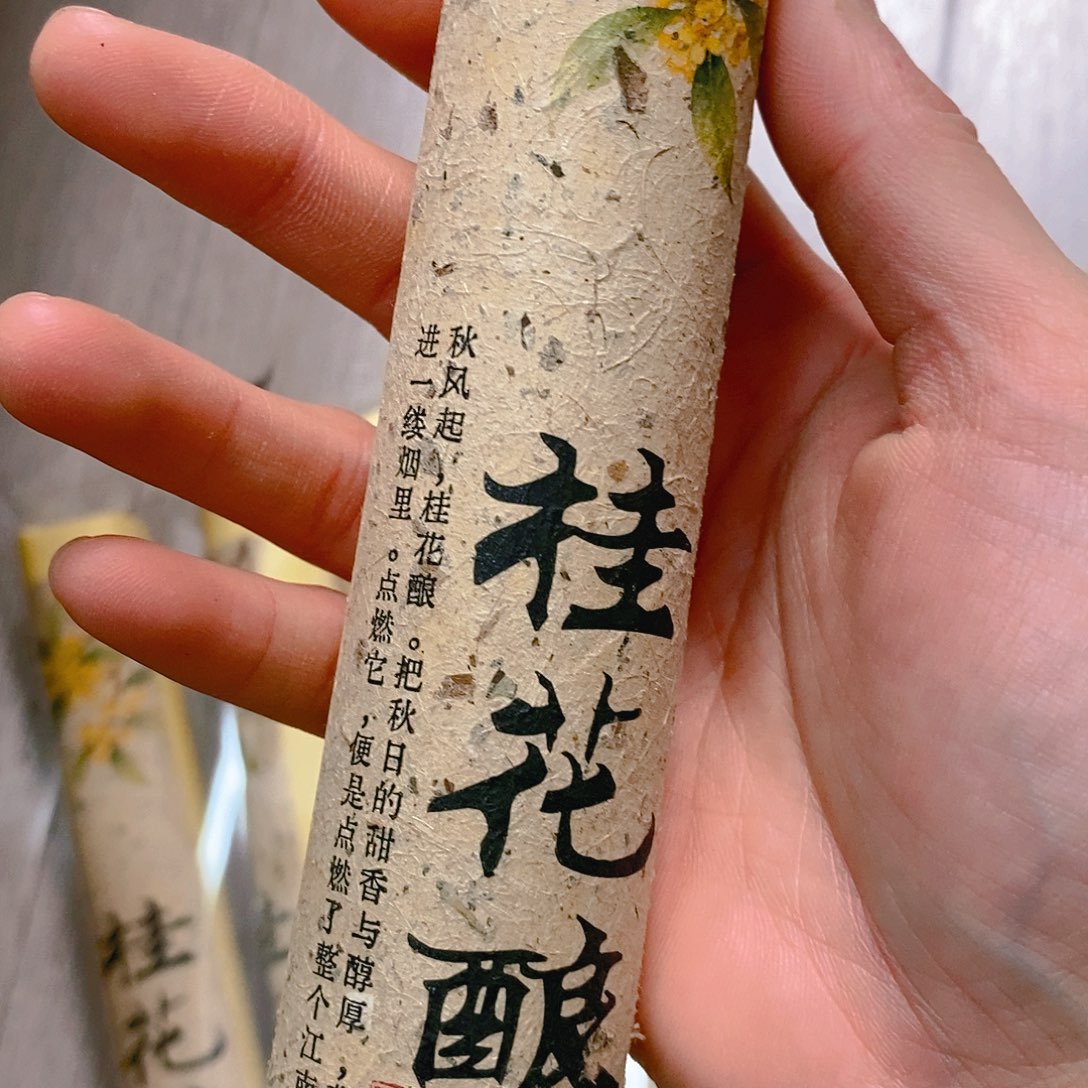 桂花酿
秋风起，桂花酿。把秋日的甜香与醇厚，
进一缕烟里。点燃它，便是点燃了整个江南
桂花